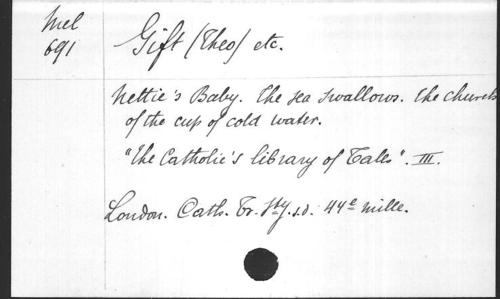 Mel
691
Gift (Theo) etc.
Nettie's Baby. The sea swallows. The church
of the cup of cold water.
"The Catholic's library of Tales". III.
London. Cath. Tr. Sty. s.d. 44e mille.